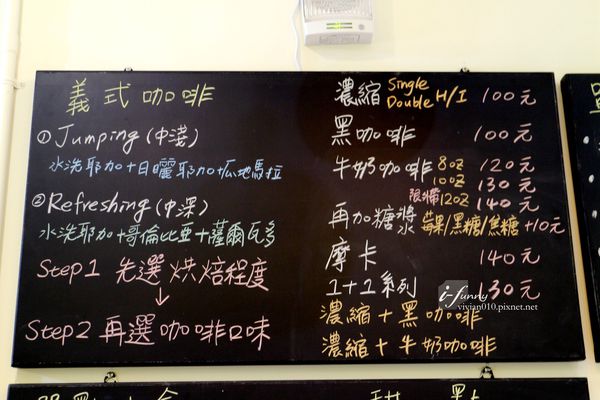 義式咖啡
①Jumping(中淺)
水洗耶加+日曬耶加+瓜地馬拉
②Refreshing(中深)
水洗耶加+哥倫比亞+薩爾瓦多
Step1 先選烘焙程度
↓
Step2 再選咖啡口味
濃縮 Single Double H/I 100元
黑咖啡 100元
牛奶咖啡 8oz 120元
10oz 130元
限外帶12oz 140元
再加糖漿 莓果/黑糖/焦糖 +10元
摩卡 140元
1+1系列 130元
濃縮+黑咖啡
濃縮+牛奶咖啡
i-funny
vivian010.pixnet.net